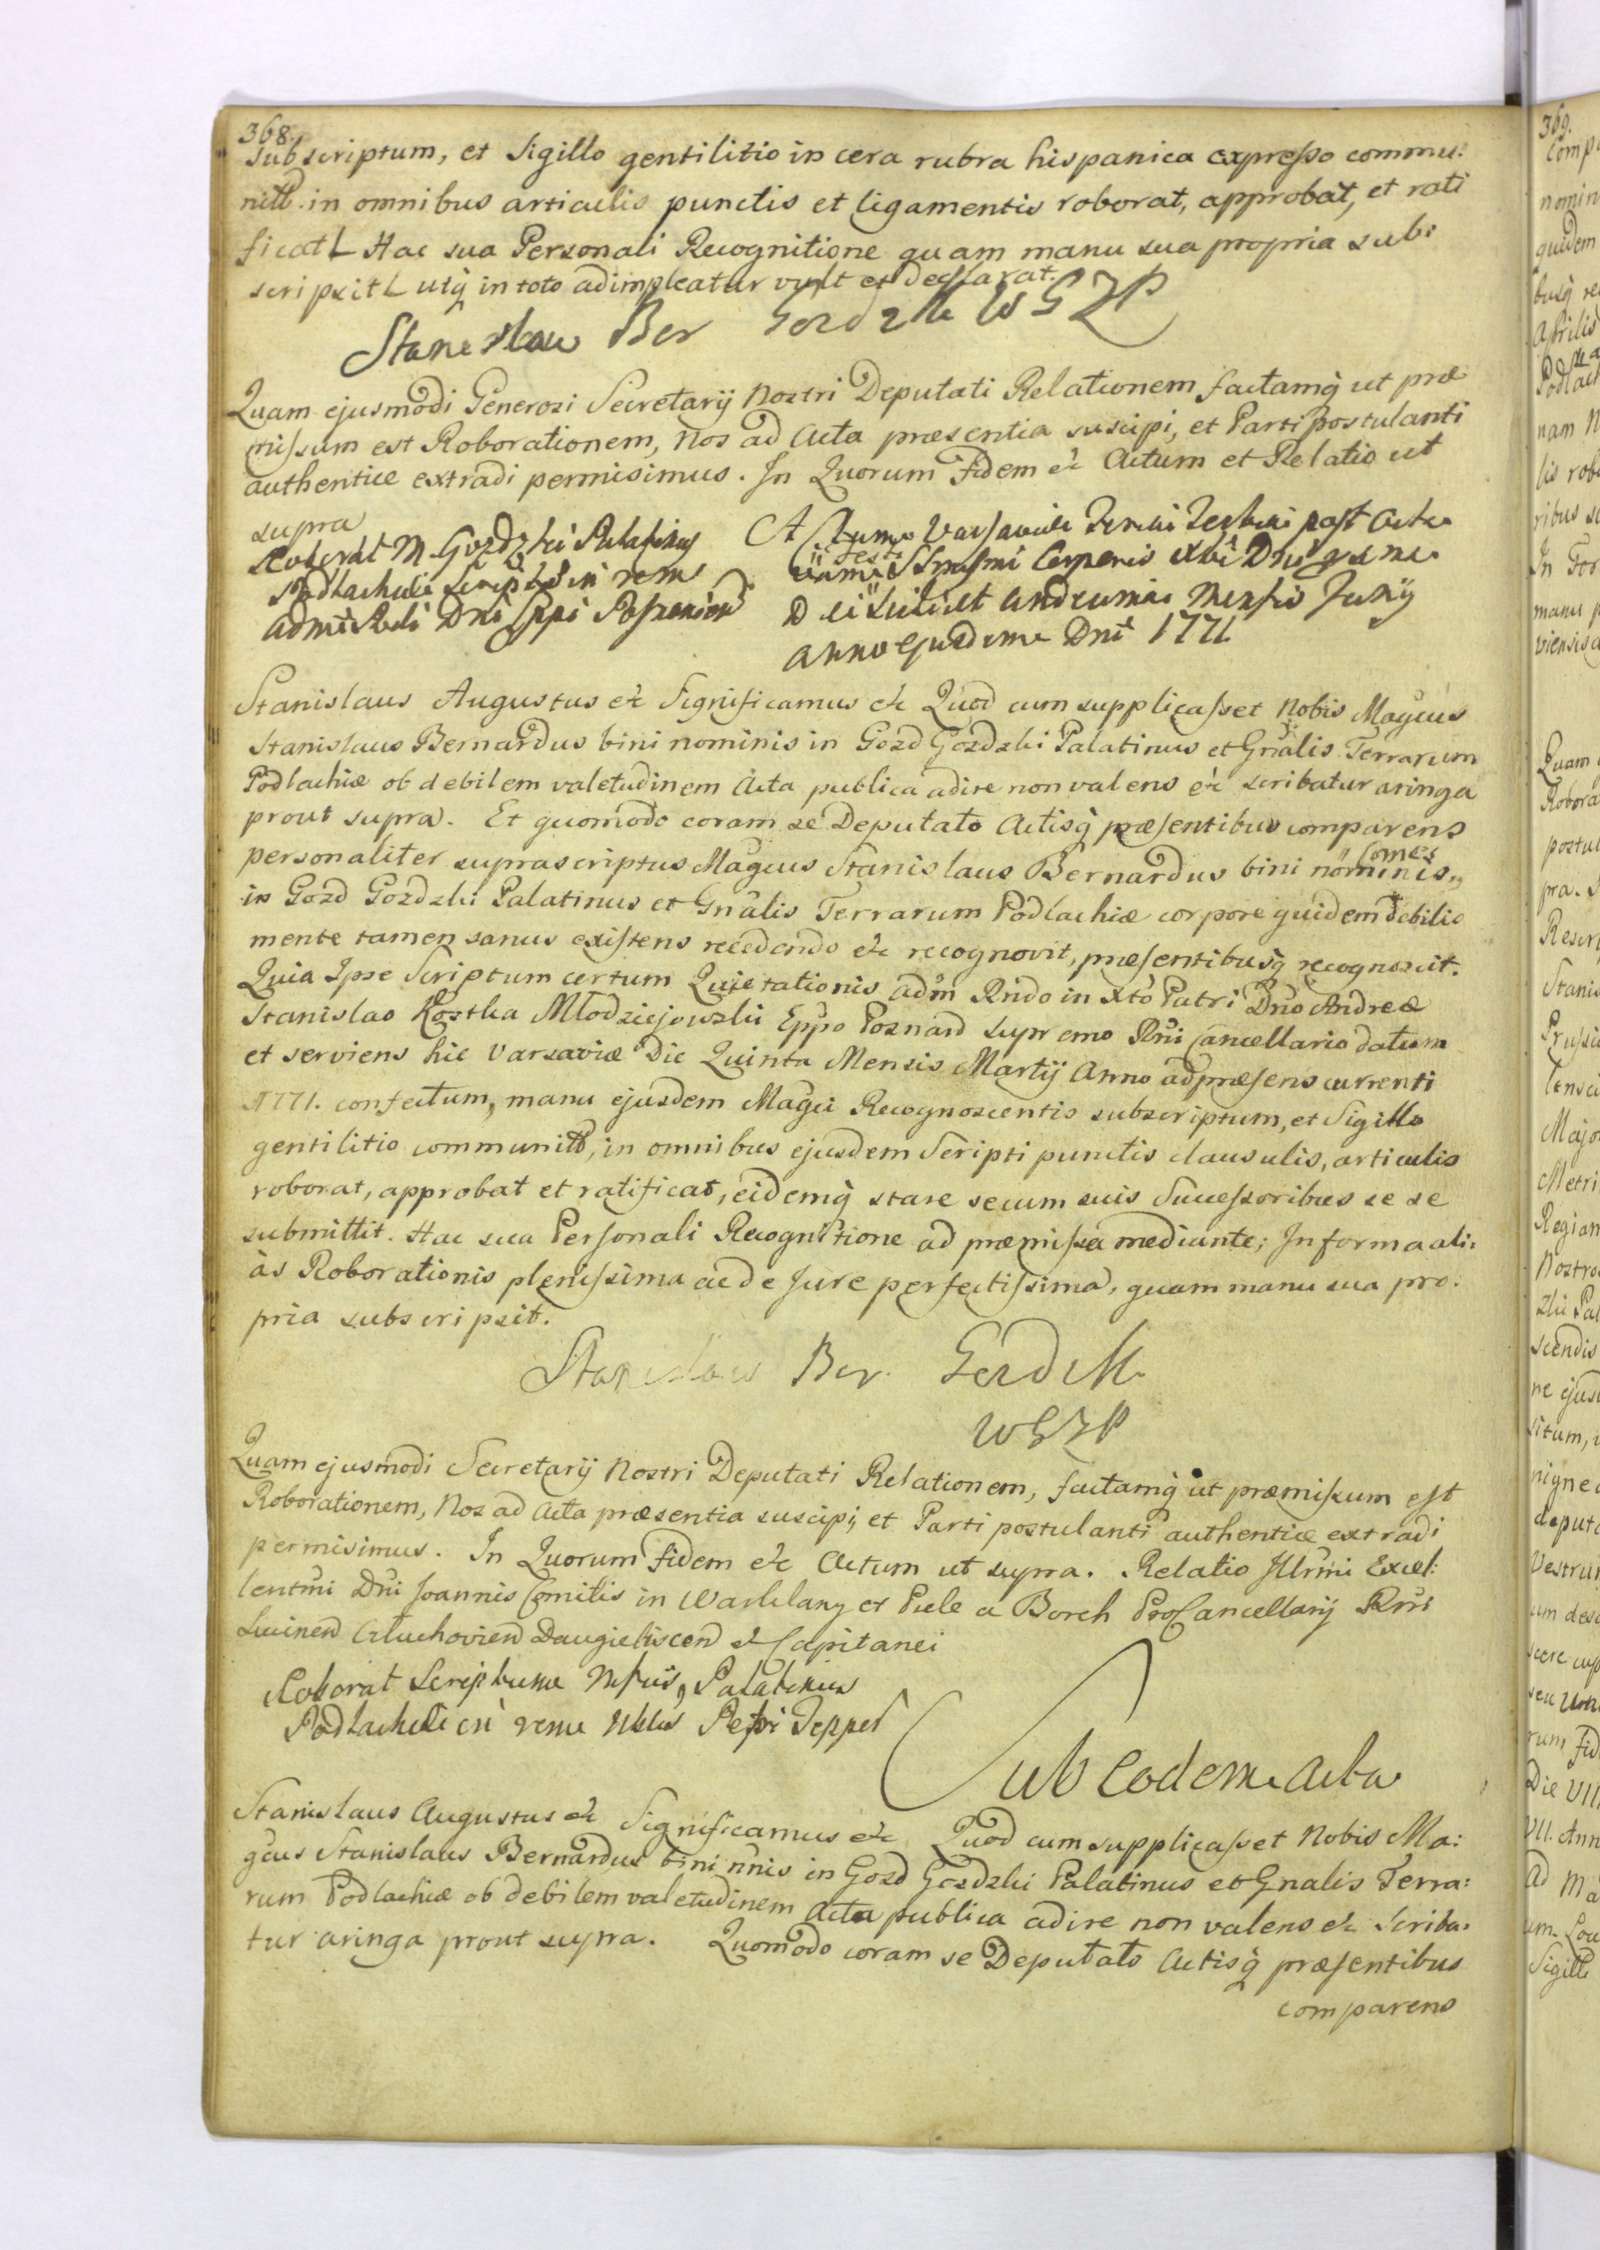 368.
subscriptum, et Sigillo gentilitio in cera rubra hispanica expresso commu:
nitt in omnibus articulis punctis et ligamentis roborat, approbat, et rati
ficat L Hac sua Personali Recognitione quam manu sua propria sub:
scripsit L utq in toto adimpleatur vult et declarat.
Stanislaw Ber Gozdzki W G Z P
Quam ejusmodi Generosi Secretarij Nostri Deputati Relationem factamq ut præ
missum est Roborationem, Nos ad Acta præsentia suscipi, et Parti postulanti
authentice extradi permisimus. In Quorum Fidem &c Actum et Relatio ut
supra
Roborat M Gozdzki Palatinus
Podlachiæ Scriptum in rem
Actum Varsaviæ Feria Tertia post Octa
vam Festi SSmi Corporis Xti Dni proxima
Die scilicet undecima Mensis Junij
anno ejusdem Dni 1771
Stanislaus Augustus &c Significamus &c Quod cum supplicasset Nobis Magcus
Stanislaus Bernardus bini nominis in Gozd Gozdzki Palatinus et Gnalis Terrarum
Podlachiæ ob debilem valetudinem Acta publica adire non valens &c scribatur aringa
prout supra. Et quomodo coram se Deputato Actisq præsentibus comparens
personaliter suprascriptus Magcus Stanislaus Bernardus bini nominis Comes
in Gozd Gozdzki Palatinus et Gnalis Terrarum Podlachiæ corpore quidem debilis
mente tamen sanus existens recedendo &c recognovit, præsentibusq recognoscit.
Quia Ipse Scriptum certum Quietationis Adm Rndo in Xto Patri Dno Andreæ
Stanislao Kostka Młodziejowski Eppo Poznan Supremo Rni Cancellario datum
et serviens hic Varsaviæ Die Quinta Mensis Martij Anno ad præsens currenti
1771. confectum, manu ejusdem Magci Recognoscentis subscriptum, et Sigillo
gentilitio communitt, in omnibus ejusdem Scripti punctis clausulis, articulis
roborat, approbat et ratificat, eidemq stare secum suis Successoribus se se
submittit. Hac sua Personali Recognitione ad præmissa mediante; In forma ali:
às Roborationis plenissima ac de Jure perfectissima, quam manu sua pro:
pria subscripsit.
Stanislaw Ber. Gozdzki
W G Z P
Quam ejusmodi Secretarij Nostri Deputati Relationem, factamq ut præmissum est
Roborationem, Nos ad Acta præsentia suscipi, et Parti postulanti authentice extradi
permisimus. In Quorum Fidem &c Actum ut supra. Relatio Illrmi Excel:
lentmi Dni Joannis Comitis in Warklany et Piele a Borch ProCancellarij Rni
Lucinen Cluchovien Daugieliscen &c Capitanei
Roborat Scriptum Mfcus Palatinus
Podlachiæ in rem Nblis Petri Tepper
Sub eodem Actu
Stanislaus Augustus &c Significamus &c Quod cum supplicasset Nobis Ma:
gcus Stanislaus Bernardus bini nnis in Gozd Gozdzki Palatinus et Gnalis Terra:
rum Podlachiæ ob debilem valetudinem Acta publica adire non valens &c Scriba:
tur aringa prout supra. Quomodo coram se Deputato Actisq præsentibus
comparens